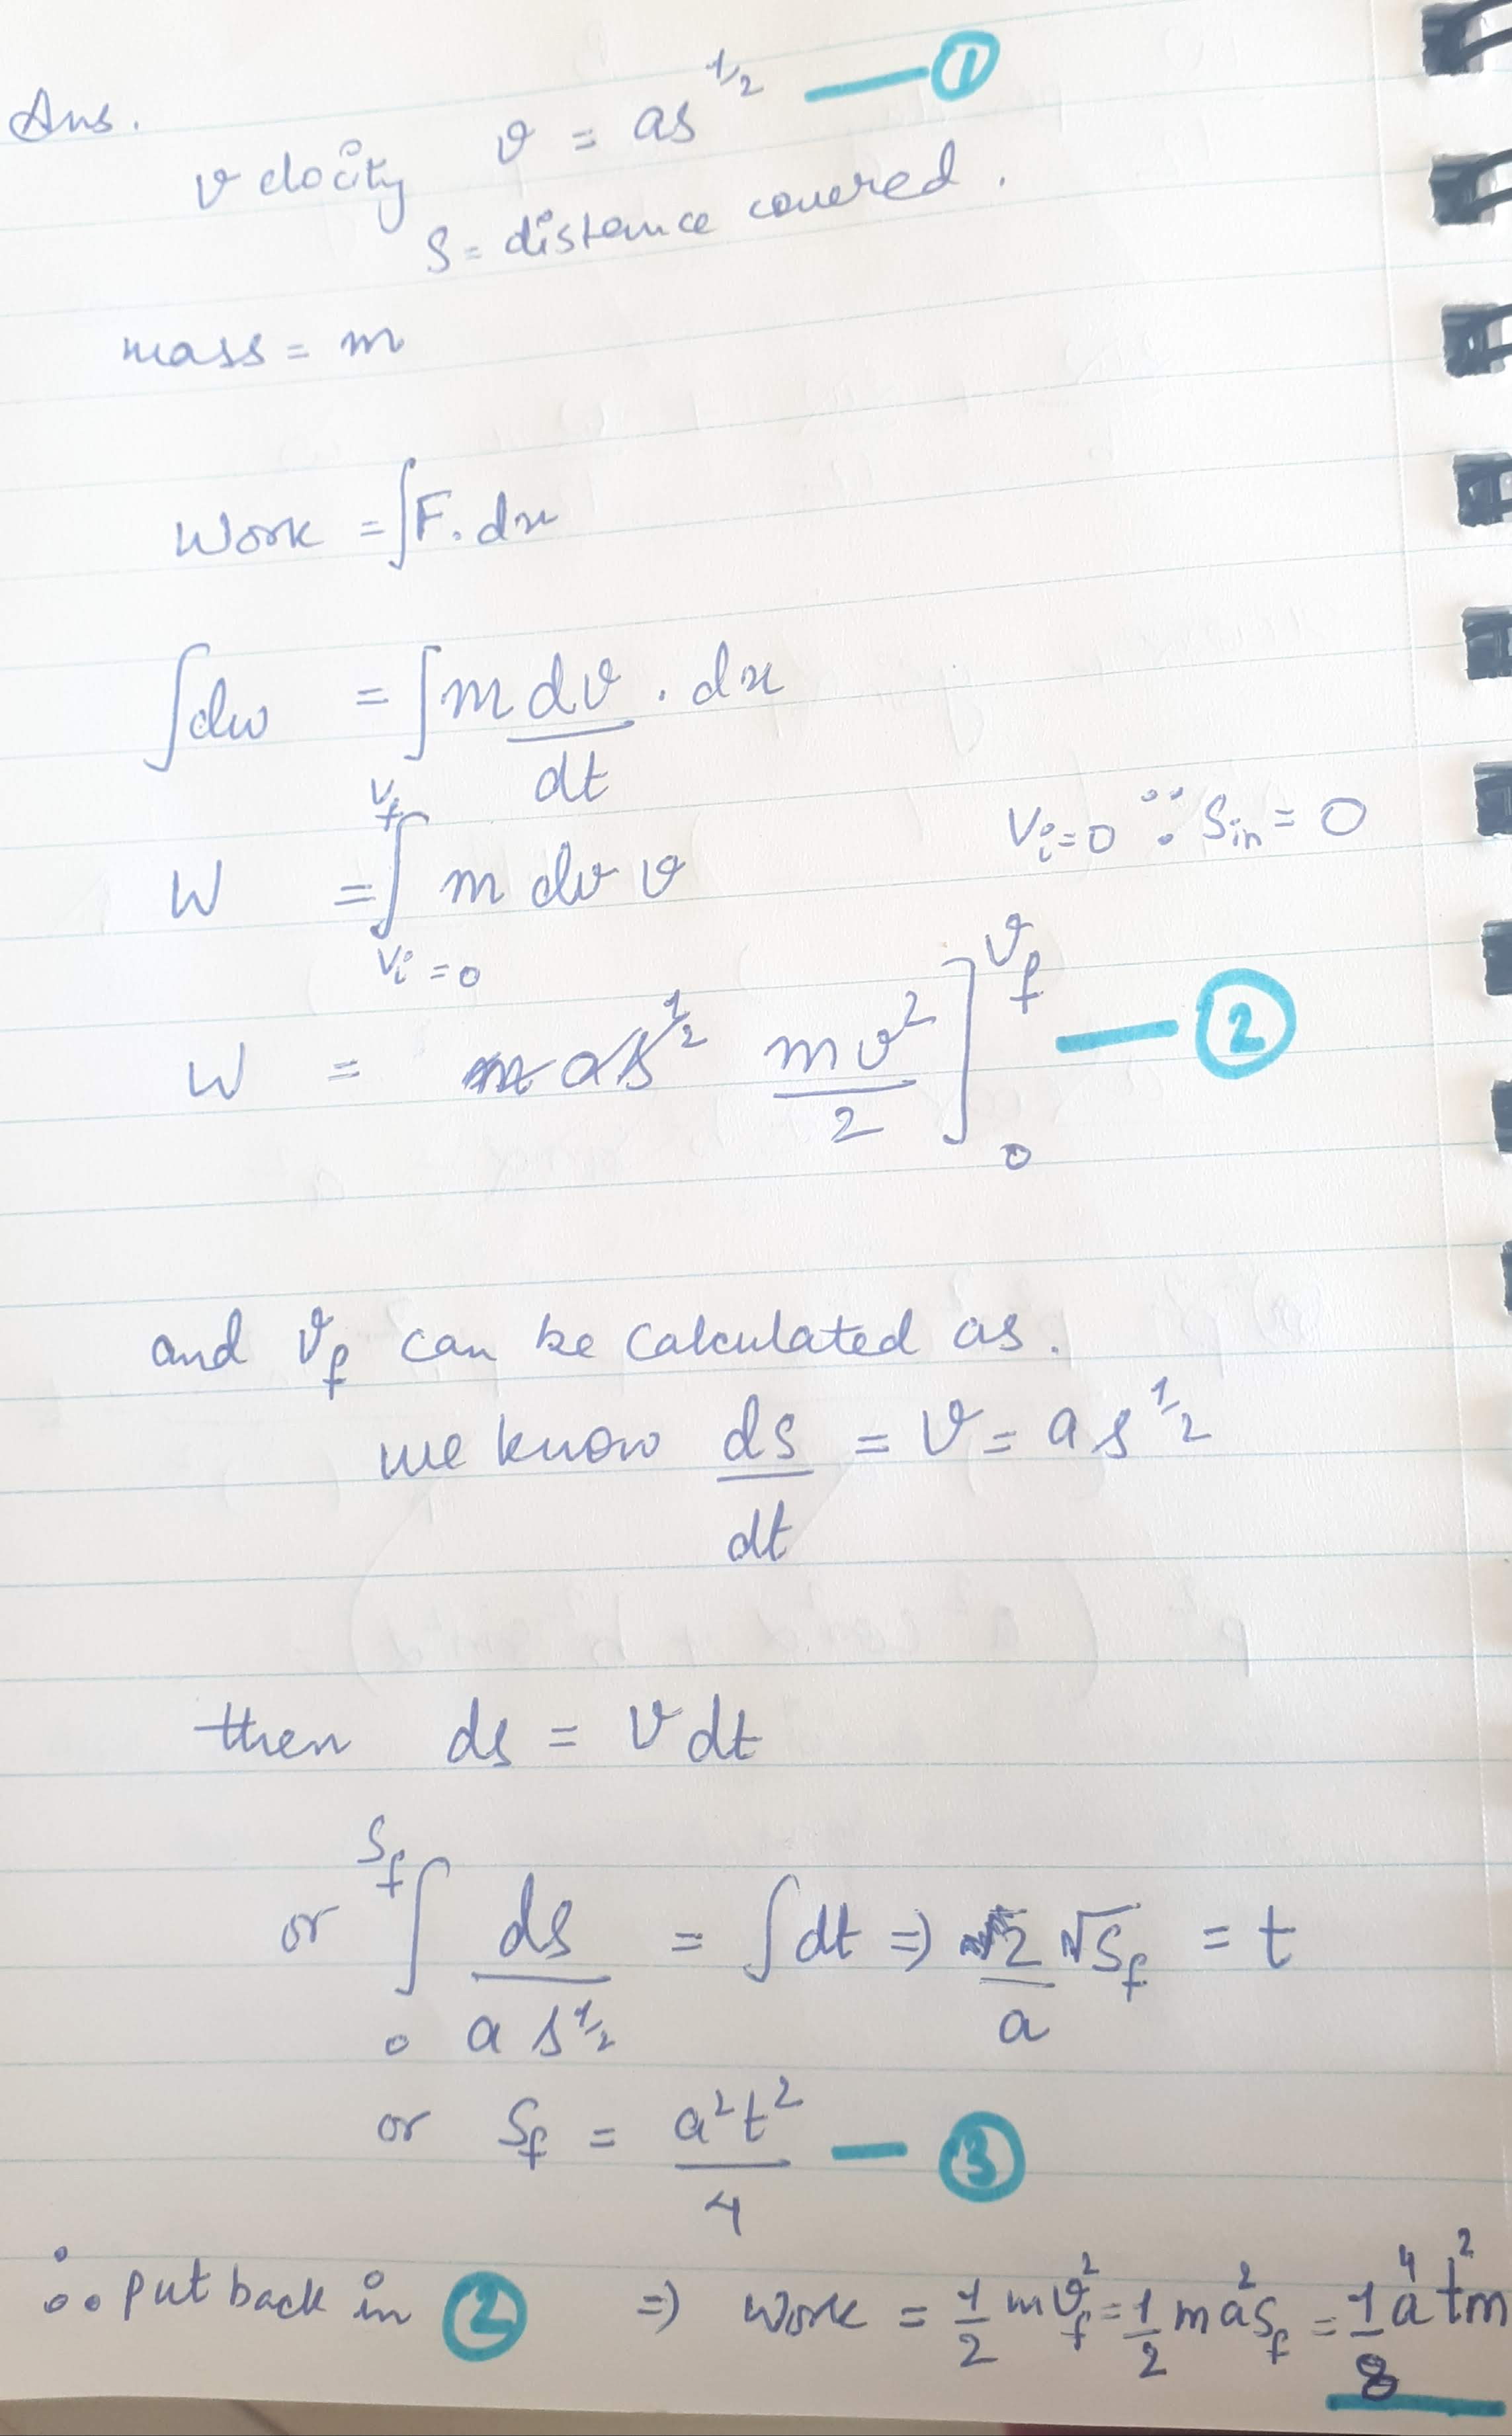 Ans.
velocity v = as^1/2 — ①
S = distance covered.
mass = m
Work = ∫F. dx
∫dw = ∫m dv/dt . dx
W = ∫_{Vi=0}^{Vf} m dv v    Vi=0 ∵ Sin = 0
W = mas^1/2 mv²/2 ]_0^{vf} — ②
and vf can be calculated as.
we know ds/dt = v = as^1/2
then ds = v dt
or ∫_0^{Sf} ds/as^1/2 = ∫dt ⇒ 2/a √Sf = t
or Sf = a²t²/4 — ③
∴ put back in ② ⇒ work = 1/2 mvf² = 1/2 ma²Sf = 1/8 a⁴t²m